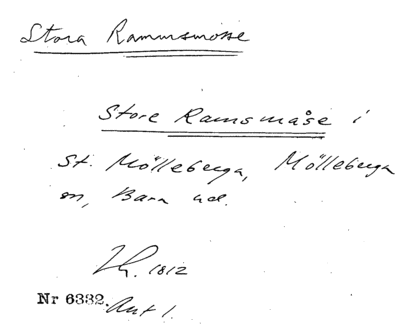 Stora Rammsmosse
Store Ramsmåse i
St. Mölleberga, Mölleberga
sn, Bara hd.
1812
Nr 6332. Akt 1.